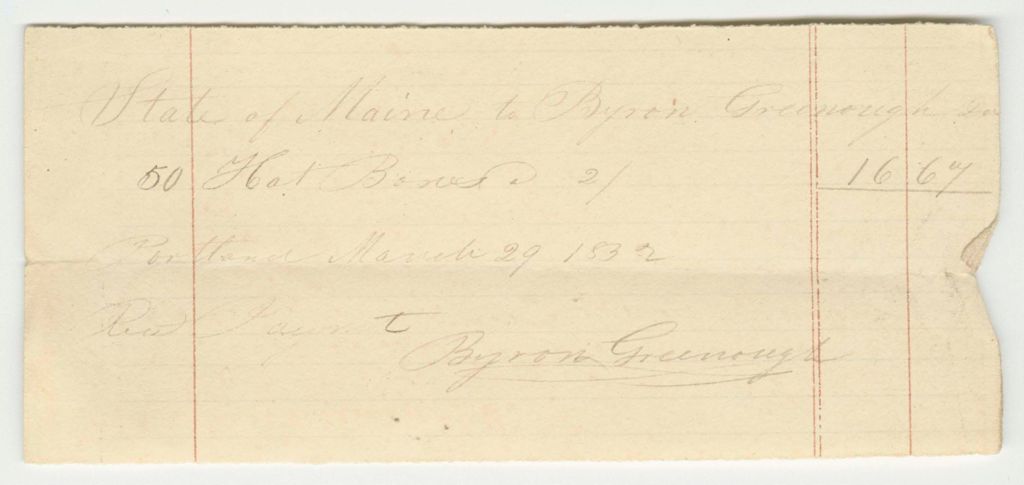 State of Maine to Byron Greenough Dr
50 Hat Boxes @ 2/ 16 67
Portland March 29 1832
Recd Paymt
Byron Greenough